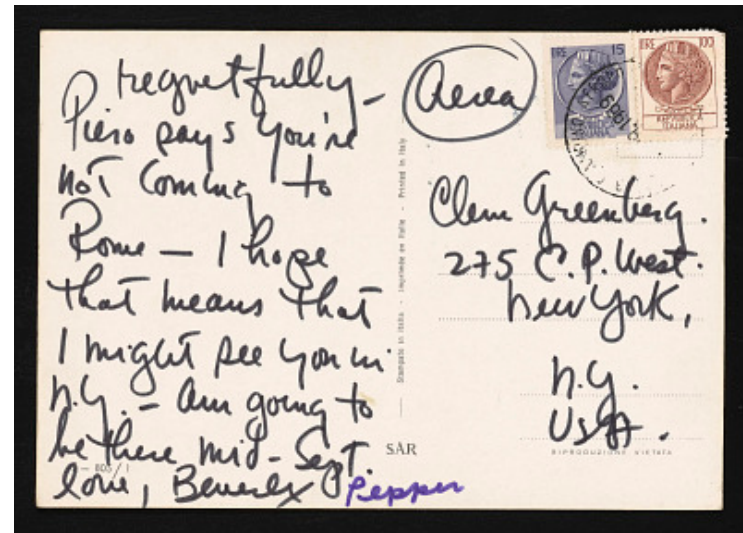 regretfully –
Piero says you're
not coming to
Rome — I hope
that means that
I might see you in
N.Y. – am going to
be there mid-Sept.
love, Beverly Pepper
805/1
SAR
Stampato in Italia - Imprimée en Italie - Printed in Italy
Aerea
LIRE 15
LIRE 100
REPUBBLICA
ITALIANA
1969
Clem Greenberg.
275 C.P. West.
New York,
N.Y.
USA.
RIPRODUZIONE VIETATA